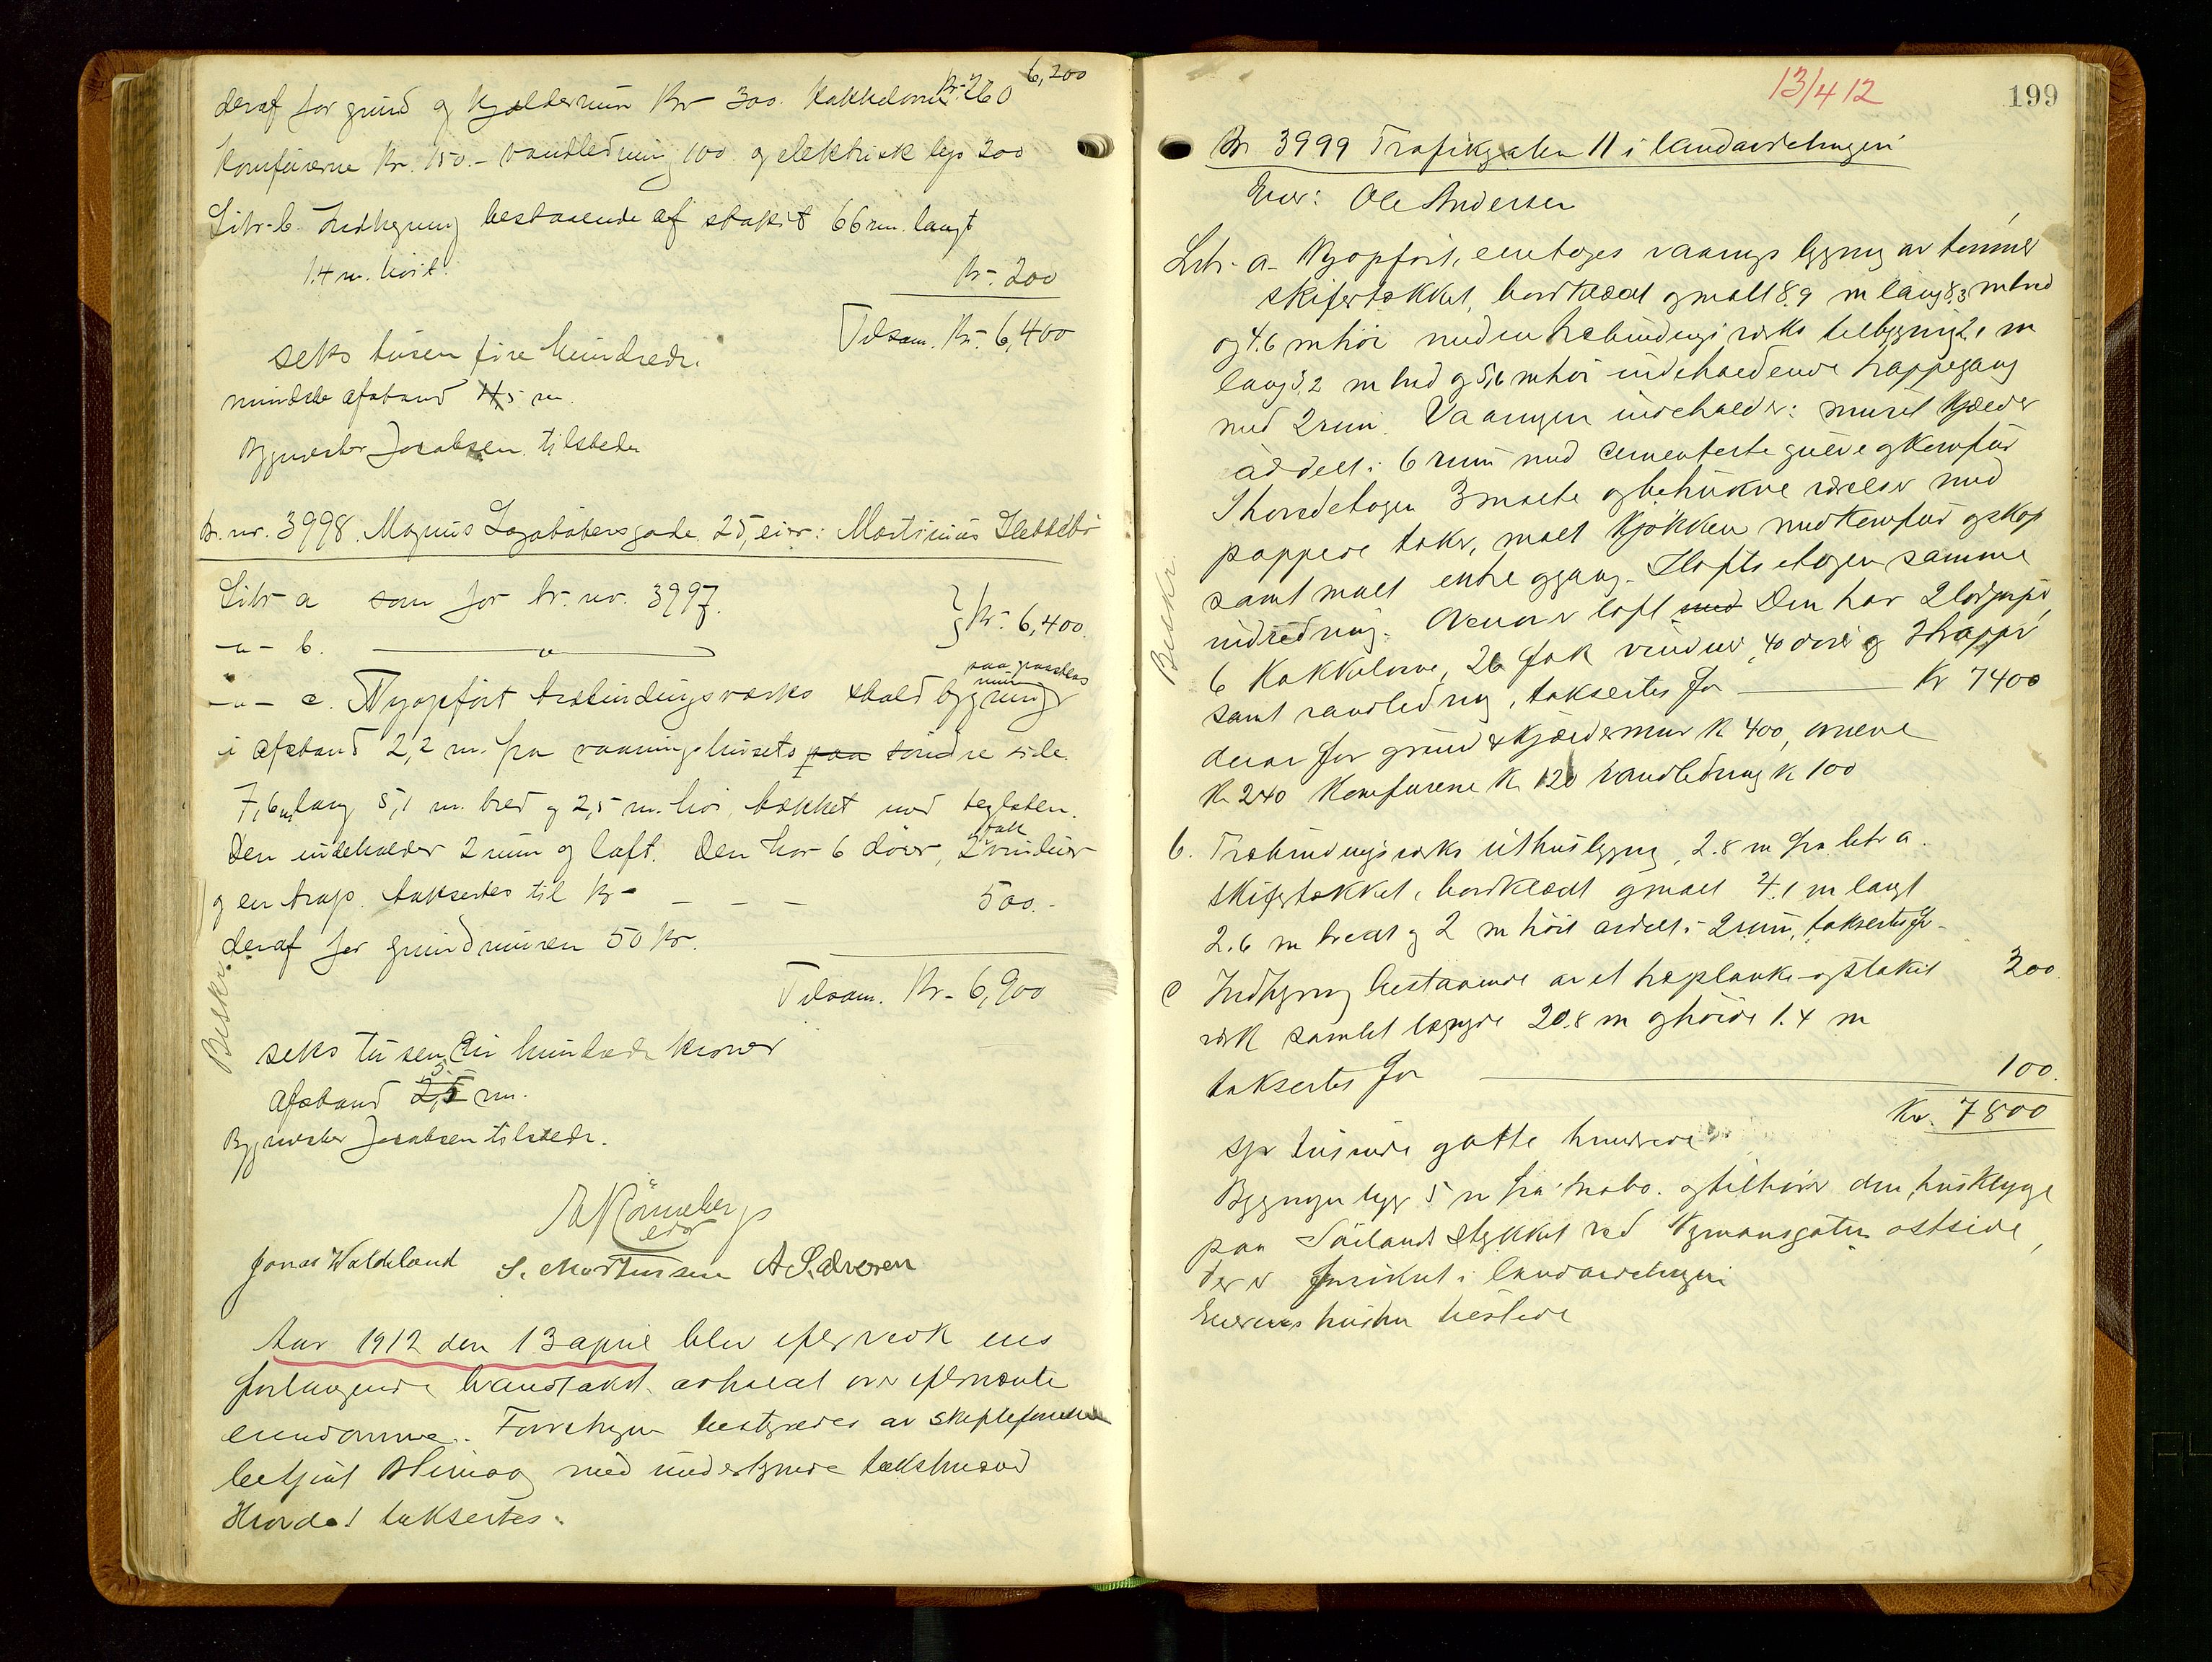 6,200
deraf for grund og kjeldermur Kr 300. kakkelovne Kr. 260
komfurerne Kr. 150.- vandledning 100 og elektrisk lys 200
Litr-b. Indhegning bestaaende af stakit 66 m. langt
1.4 m. höit.
Kr. 200
Tilsam. Kr. 6,400
seks tusen fire hundrede.
mindste afstand 5 m.
Bygmester Jacobsen tilstede
Br. nr. 3998. Magnus Lagabøtersgade 25, eier: Martinius
Litr a som for br. nr. 3997.
-"- b. —"—
Kr. 6,400.
paa
mur
-"- c. Nyopfört trebindingsværks stald bygning
i afstand 2,2 m. fra vaaningshusets paa söndre side.
7,6 m lang 5,1 m. bred og 2,5 m. höi, tækket med teglsten.
Den indeholder 2 rum og loft. Den har 6 dörer, 2 fak vinduer
og en trap. taksertes til Kr - - - - 500.-
deraf for grundmuren 50 Kr.
Tilsam. Kr- 6,900
Beskr.
seks tusen ni hundrede kroner
afstand 2,5 m.
Bygmester Jacobsen tilstede.
Jonas Waldeland S. Morthensen A. Salvesen
Aar 1912 den 13 april blev efter vedk eies
forlangende brandtakst avholdt over efternævnte
eiendomme. Forretningen bestyredes av
betjent med undertegnede takstmænd
Hvorda! taksertes.
13/4 12
199
Br 3999 Trafikgaten 11 i landavdelingen
Eier: Ole Andersen
Litr- a- Nyopfört, enetages vaanings bygning av tømmer
skifertækket, bordklædt og malt 8.9 m lang 8.3 m bred
og 4.6 m höi med en trebindings værks tilbygning 2,1 m
lang 3,2 m bred og 5,6 m höi indeholdende trappegang
med 2 rum. Vaaningen indeholder: muret kjælder
avdelt i 6 rum med cementerte gulve og komfur
I hovedetagen 3 malte og betrukne værelser med
pappede taker, malt kjökken med komfur og skap
samt malt entre og gang. I loftsetagen samme
indredning. Ovenover loft med Den har 2
6 kakkelovne, 26 fak vinduer, 40 dörer og 3 trapper
samt vandledning, taksertes for — Kr 7400
Beskr.
derav for grund & kjeldermur Kr 400, ovnene
Kr 240 komfurene Kr 120 vandledning Kr 100
b. Træbindingsværks uthusbygning, 2.8 m fra litr a.
skifertækket, bordklædt og malt 4.1 m langt
2.6 m bredt og 2 m höit avdelt i 2 rum, taksertes for-
300.
c Indhegning bestaaende av et træplanke- og stakit
verk samlet længde 20.8 m og höide 1.4 m
taksertes for — 100.
Kr. 7800
syv tusinde og otte hundrede
Bygningen ligger 5 m fra nabo. og tilhörer den husklynge
paa stykket ved Nymansgaten ostside,
der er forsikret i landavdelingen
Eierens hustru tilstede